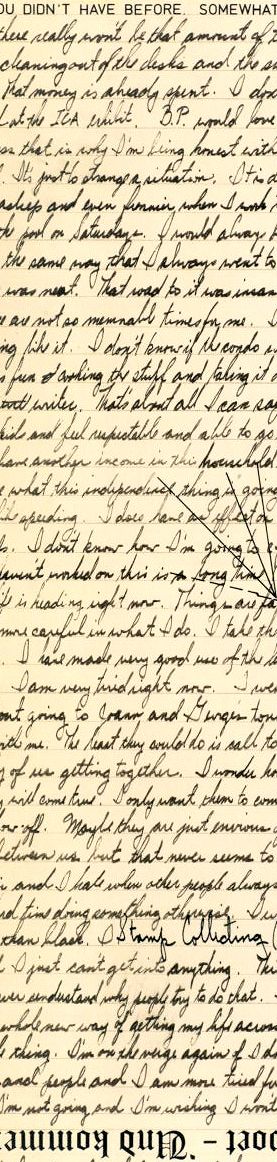 OU DIDN'T HAVE BEFORE. SOMEWHAT
there really won't be that amount of t
cleaning out of the desks and the s
That money is already spent. I don
at the ICA exhibit. B.P. would love
ss that is why I'm being honest with
. It's just to strange a situation. It is d
asleep and even funnier when I work
the pool on Saturdays. I would always
the same way that I always went to
was neat. That road to it was insan
e are not so memorable times for me. I
ng like it. I don't know if the condo is
s fun working the stuff and faking it
writer. That's about all I can say
kids and feel respectable and able to go
have another income in this household
e what this independence thing is going
like speeding. I does have an effect on
s. I don't know how I'm going to
haven't worked on this in a long time
life is heading right now. Things are
more careful in what I do. I take the
. I have made very good use of the
I am very tired right now. I we
out going to Joann and George's tou
with me. The least they could do is call t
y of us getting together. I wonder ho
y will come true. I only want them to com
ow off. Maybe they are just envious
between us but that never seems to
and I hate when other people always
nd fims doing something otherwise. I
than black. I Stamp Collecting (
I just can't get into anything. Thi
ever understand why people try to do that.
whole new way of getting my life across
e thing. I'm on the verge again if I d
and people and I am more tired f
I'm not going and I'm wishing I won't
poet – "Und kommen